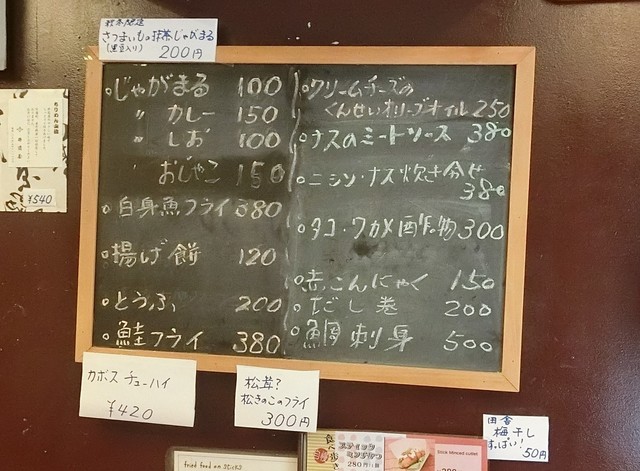 秋冬限定
さつまいもの抹茶じゃがまる
(黒豆入り) 200円
・じゃがまる 100
〃 カレー 150
〃 しお 100
〃 おじゃこ 150
・白身魚フライ 380
・揚げ餅 120
・とうふ 200
・鮭フライ 380
・クリームチーズの
くんせいオリーブオイル 250
・ナスのミートソース 380
・ニシン・ナス炊き合せ
380
・タコ・ワカメ酢の物 300
・赤こんにゃく 150
・だし巻 200
・鯛刺身 500
¥540
カボスチューハイ
¥420
松茸?
松きのこのフライ
300円
田舎
梅干し
すっぱい! 50円
スティック
ミンチカツ
280円
Stick Minced cutlet
fried food on sticks